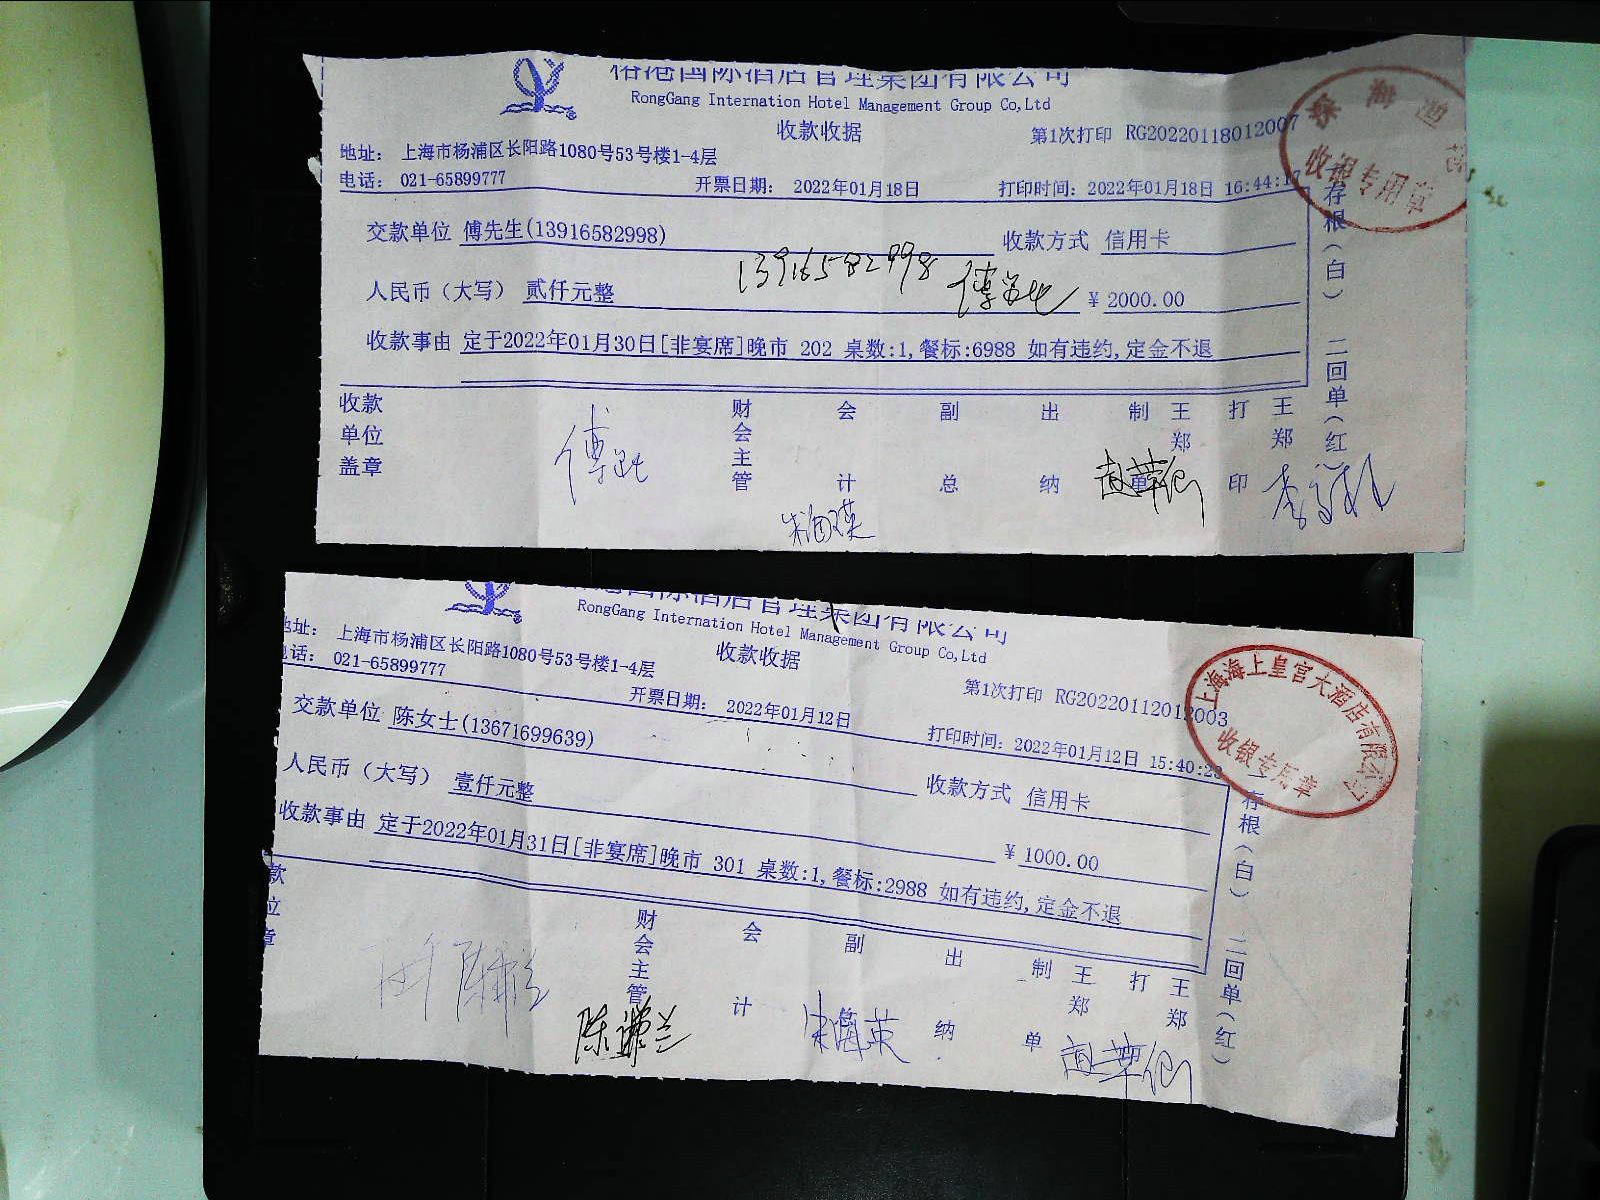 榕港国际酒店管理集团有限公司
RongGang Internation Hotel Management Group Co,Ltd
收款收据
第1次打印 RG20220118012007
地址： 上海市杨浦区长阳路1080号53号楼1-4层
电话： 021-65899777
开票日期： 2022年01月18日
打印时间：2022年01月18日 16:44:17
收银专用章
交款单位 傅先生(13916582998)
收款方式 信用卡
13916582998
人民币（大写） 贰仟元整
¥ 2000.00
收款事由 定于2022年01月30日[非宴席]晚市 202 桌数:1,餐标:6988 如有违约,定金不退
存根（白） 二回单（红）
收款单位盖章
财会主管 会计 副总 出纳 制单 王郑 打印 王郑
国际酒店管理集团有限公司
RongGang Internation Hotel Management Group Co,Ltd
收款收据
第1次打印 RG20220112012003
地址： 上海市杨浦区长阳路1080号53号楼1-4层
电话： 021-65899777
开票日期： 2022年01月12日
打印时间：2022年01月12日 15:40:23
上海海上皇宫大酒店有限公司
收银专用章
交款单位 陈女士(13671699639)
收款方式 信用卡
人民币（大写） 壹仟元整
¥ 1000.00
收款事由 定于2022年01月31日[非宴席]晚市 301 桌数:1,餐标:2988 如有违约,定金不退
存根（白） 二回单（红）
款位章
财会主管 会计 副 出纳 制单 王郑 打 王郑